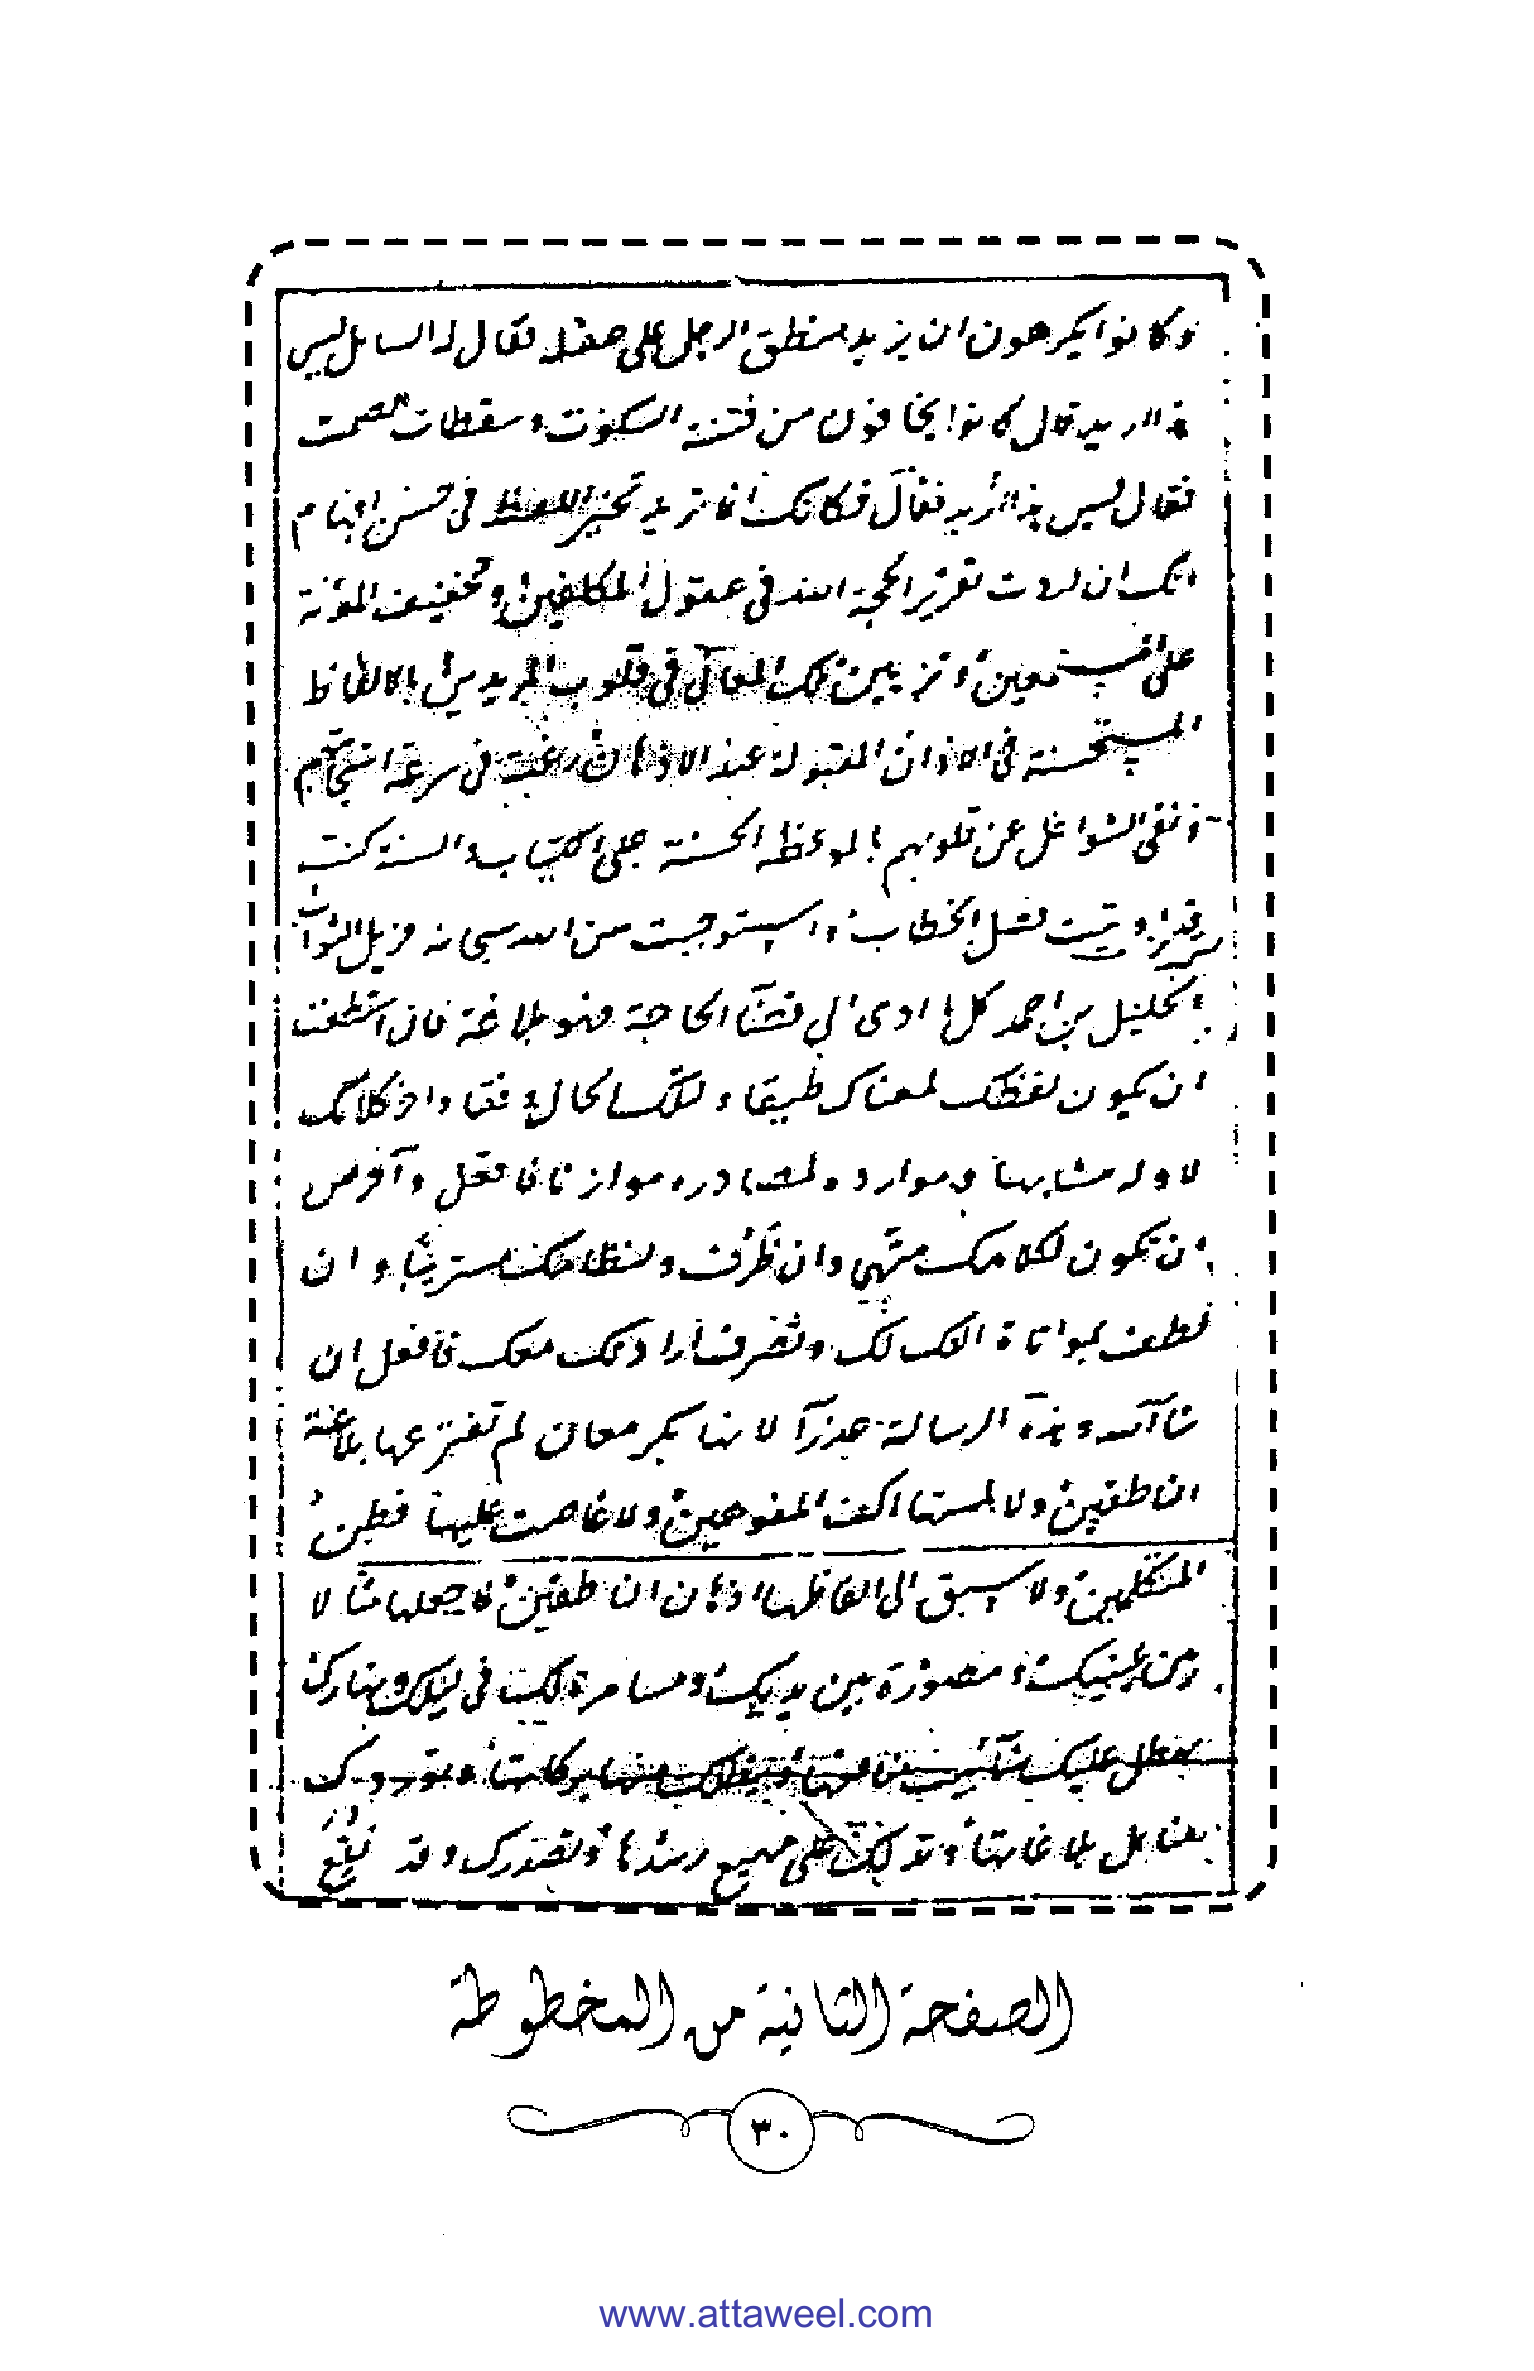 وكانوا يكرهون ان يزيد منطق الرجل على عقله فقال له السايل ليس
هذا اريد قال كانوا يخافون من فتنة السكوت وسقطات الصمت
فقال ليس هذا اريد فقال فكانك انما تريد تخير اللفظ في حسن افهام
انك ان اردت تقرير الحجة الله في عقول المكلفين وتخفيف المؤنة
على المستمعين وتزيين تلك المعاني في قلوب المريدين بالالفاظ
المستحسنة في الاذان المقبولة عند الاذهان رغبة في سرعة استجابتهم
ونفى الشواغل عن قلوبهم بالموعظة الحسنة على الكتاب والسنة كنت
قد اوتيت فصل الخطاب واستوجبت من الله سبحانه جزيل الثواب
الخليل بن احمد كل ما ادى الى قضآ الحاجة فهو بلاغة فان استطعت
ان يكون لفظك لمعناك طبقا ولتلك الحال وفقا واخر كلامك
لاوله مشابها وموارده لمصادره موازنا فافعل واحرص
ان تكون لكلامك متهما وان ظرف ولنظامك مستريبا وان
لطف بمواتاة الك لك وتصرف ارادتك معك فافعل ان
شاالله وهذه الرسالة عذرآ لانها بكر معان لم تفترعها بلاغة
الناطقين ولا لمستها اكف المفوهين ولا غاصت عليها فطن
المتكلمين ولا سبق الى الفاظها اذهان الناطقين فاجعلها مثالا
بين عينيك ومصورة بين يديك ومسامرة لك في ليلك ونهارك
تهطل عليك شآبيب منافعها ويظلك منها بركاتها وتوردك
مناهل بلاغاتها وتدلك على مهيع رشدها وتصدرك وقد نقع
الصفحة الثانية من المخطوطة
٣٠
www.attaweel.com